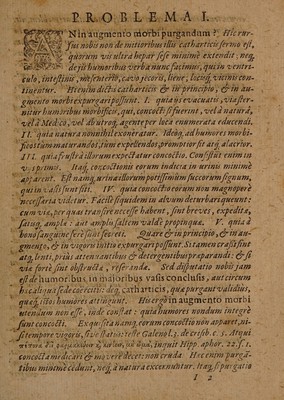 PROBLEMA I.
AN in augmento morbi purgandum? Hic rur-
sus nobis non de mitioribus illis catharticis sermo est,
quorum vis ultra hepar sese minimè extendit: neq;
de iis humoribus verba nunc facimus, qui in ventri-
culo, intestinis, mesenterio, cavo jecoris, liene, locisq; vicinis con-
tinentur. Hi enim dictis catharticis & in principio, & in au-
gmento morbi expurgari possunt. I. quia ijs evacuati, via ster-
nitur humoribus morbificis, qui, concocti si fuerint, vel à naturâ,
vel à Medico, vel ab utroq; agente per loca enumerata educendi.
II. quia natura nonnihil exoneratur. Ideoq; ad humores morbi-
ficos tùm maturandos, tùm expellendos, promptior sit atq; alacrior.
III. quia frustrà illorum expectatur concoctio. Consistunt enim in
v. primis. Itaq; concoctionis eorum indicia in urinis minimè
apparent. Est namq; urina illorum potissimùm succorum signum,
qui in vasis sunt siti. IV. quia concoctio eorum non magnoperè
necessaria videtur. Facilè siquidem in alvum deturbari queunt:
cum viæ, per quas transire necesse habent, sint breves, expedita,
satisq; amplæ: aut ampliis saltem valdè propinquæ. V. quia à
bono sanguine sese sunt secreti. Quare & in principio, & in au-
gmento, & in vigore instituti expurgari possunt. Si tamen crassi sint
atq; lenti, prius attenuantibus & detergentibus præparandi: & si
viæ fortè sint obstructæ, reserandæ. Sed disputatio nobis jam
est de humoribus, in majoribus vasis conclusis, aut circum
hisce aliqua sede decretis: deq; catharticis, quæ purgant validiùs,
quæq; istos humores attingunt. Hi ergò in augmento morbi
utendum non esse, inde constat: quia humores nondum integrè
sunt concocti. Exquisita namq; eorum concoctio non apparet, ni-
si tempore vigoris,
inquit Hipp. aphor. 22. s. 1.
concocta medicari & movere decet: non cruda. His enim purgan-
tibus minimè cedunt, neq; à natura excernuntur. Itaq; si purgatio
I 2